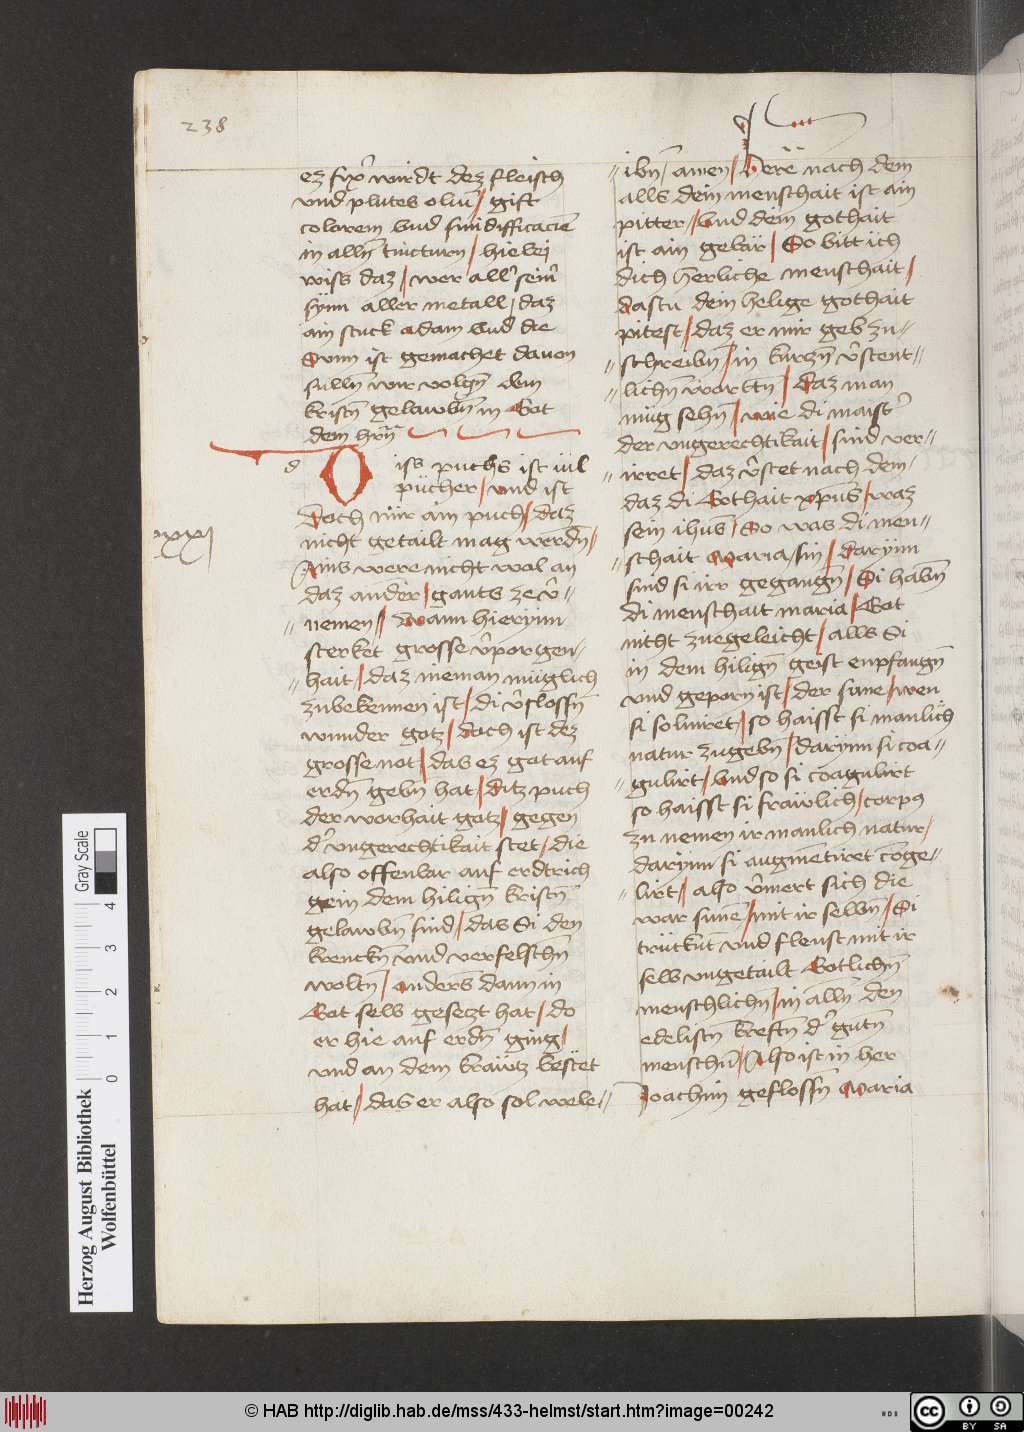 238
ez fix̉ wirdt dez fleisch
vnd plutes olim̄ / gift
colorem vnd sim difficaciē
in alln̄ tincturn / hie bej
wiss daz / wer all' sein'
synn aller metall / daz
ain stuck adam vnd die
Sunn ist gemachet dauon
sulln̄ wir volgn̄ dem
kristn̄ gelawbn̄ in Got
dem hrn̄
d
Diss puchs ist vil
pücher / vnd ist
Doch nür ain puch / daz
nicht getailt mag werdn̄ /
xxxj
Ains were nicht wol an
daz ander / gants ze v'-
nemen / wann hierynn
sterket grosse v'porgen-
hait / daz nieman müglich
zubekennen ist / di v'flossn̄
wunder gotz / doch ist dez
grosse not / das ez got auf
erdn̄ gebn̄ hat / ditz puch
der worhait gotz / gegen
d' vngerechtikait stet / die
also offenbar auf erdtrich
gein dem hilign̄ kristn̄
gelawbn̄ sind / das Si den
krenckn̄ vnd verfelschn̄
woltn̄ / anders dann in
Got selb gesetzt hat / do
er hie auf erdn̄ ging /
vnd an dem kräutz bestet
hat / das er also sol wele-
ibn̄ / amen / Here nach dem
alls dein menschait ist ain
pitter / vnd dein gothait
ist ain gebär / So bitt ich
dich herliche menschait /
dastu dein helige gothait
pitest / daz er mir geb zu-
schreibn̄ / in kurzn̄ v'stent-
lichn̄ worttn̄ / daz man
müg sehn̄ / wie di maist'
der vngerechtikait / sind ver-
irret / daz v'stet nach dem
daz di Gothait xpus̄ / waz
sein ihus̄ / So was di men-
schait Maria / sin / darynn
sind si irr gegangn̄ / Si habn̄
di menschait maria / Got
nicht zuegeleicht / alls Si
in dem hilign̄ geist enpfangn̄
vnd geporn ist / der sune / wen
si soluiret / so haisst si manlich
natur zugebn̄ / darynn si coa-
gulirt / vnd so si coagulirt
so haisst si fräwlich / corpus
zu nemen ir manlich natur /
darynn si augmētiret cōge-
lirt / also v'mert sich die
war sunē / mit ir selbn̄ / Si
trückn̄t vnd fleust mit ir
selb vngetailt Gotlichn̄
menschlichn̄ / in alln̄ den
edelistn̄ kreftn̄ d' gutn̄
menschn̄ / Also ist in her
Joachim geflossn̄ Maria
Gray Scale
0 1 2 3 4
Herzog August Bibliothek
Wolfenbüttel
© HAB http://diglib.hab.de/mss/433-helmst/start.htm?image=00242
cc BY SA